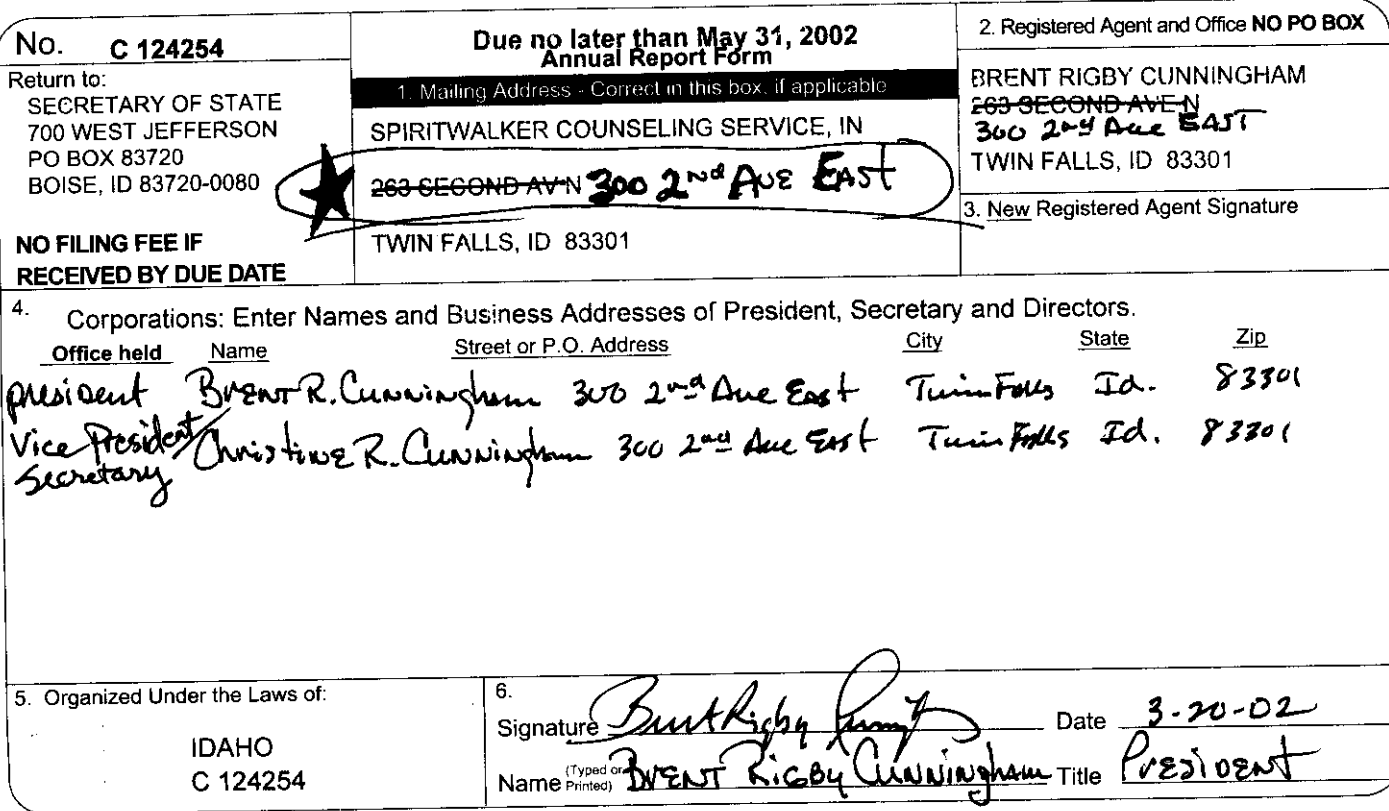 No. C 124254
Return to:
SECRETARY OF STATE
700 WEST JEFFERSON
PO BOX 83720
BOISE, ID 83720-0080
NO FILING FEE IF
RECEIVED BY DUE DATE
Due no later than May 31, 2002
Annual Report Form
1. Mailing Address - Correct in this box, if applicable
SPIRITWALKER COUNSELING SERVICE, IN
263 SECOND AV N 300 2nd Ave EAST
TWIN FALLS, ID 83301
2. Registered Agent and Office NO PO BOX
BRENT RIGBY CUNNINGHAM
263 SECOND AVE N
300 2nd Ave EAST
TWIN FALLS, ID 83301
3. New Registered Agent Signature
4. Corporations: Enter Names and Business Addresses of President, Secretary and Directors.
Office held Name Street or P.O. Address City State Zip
president Brent R. Cunningham 300 2nd Ave East Twin Falls Id. 83301
Vice President/ Christine R. Cunningham 300 2nd Ave East Twin Falls Id. 83301
Secretary
5. Organized Under the Laws of:
IDAHO
C 124254
6.
Signature Brent Rigby Date 3-20-02
Name (Typed or Printed) Brent Rigby Cunningham Title President